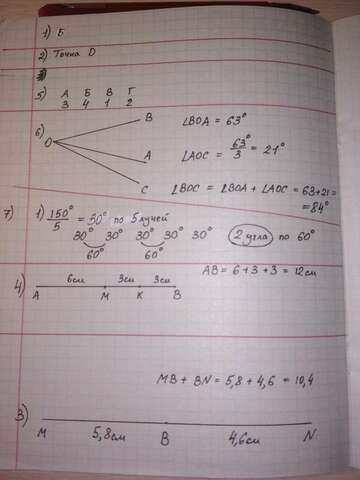 1) Б
2) Точка D
5) А Б В Г
3 4 1 2
6) O B A C
∠BOA = 63°
∠AOC = 63°/3 = 21°
∠BOC = ∠BOA + ∠AOC = 63+21=
= 84°
7) 1) 150°/5 = 30° по 5 лучей
30° 30° 30° 30° 30°
60° 60°
2 угла по 60°
4) 6см 3см 3см
A M K B
AB = 6+3+3 = 12см
MB + BN = 5,8 + 4,6 = 10,4
3)
M 5,8см B 4,6см N